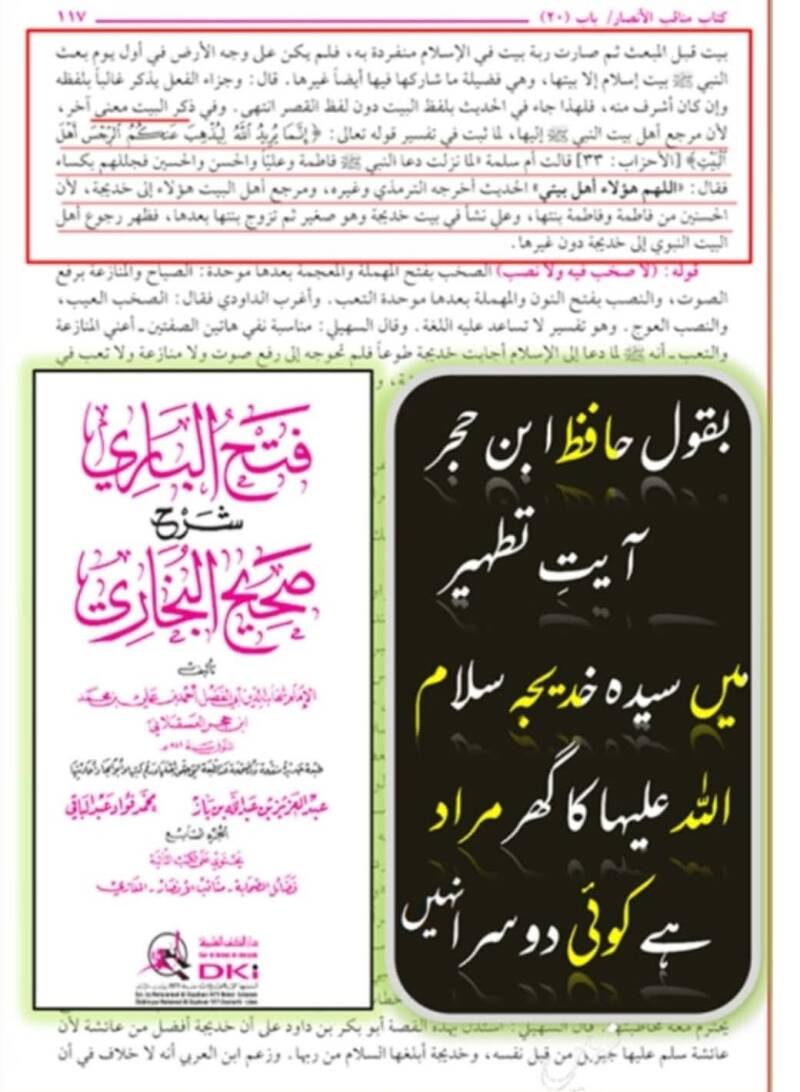 كتاب مناقب الأنصار/ باب (٢٠)
١١٧
بيت قبل المبعث ثم صارت ربة بيت في الإسلام منفردة به، فلم يكن على وجه الأرض في أول يوم بعث
النبي ﷺ بيت إسلام إلا بيتها، وهي فضيلة ما شاركها فيها أيضاً غيرها. قال: وجزاء الفعل يذكر غالباً بلفظه
وإن كان أشرف منه، فلهذا جاء في الحديث بلفظ البيت دون لفظ القصر انتهى. وفي ذكر البيت معنى آخر،
لأن مرجع أهل بيت النبي ﷺ إليها، لما ثبت في تفسير قوله تعالى: ﴿إِنَّمَا يُرِيدُ ٱللَّهُ لِيُذْهِبَ عَنكُمُ ٱلرِّجْسَ أَهْلَ
ٱلْبَيْتِ﴾ [الأحزاب: ٣٣] قالت أم سلمة «لما نزلت دعا النبي ﷺ فاطمة وعليّاً والحسن والحسين فجللهم بكساء
فقال: «اللهم هؤلاء أهل بيتي» الحديث أخرجه الترمذي وغيره، ومرجع أهل البيت هؤلاء إلى خديجة، لأن
الحسنين من فاطمة وفاطمة بنتها، وعلي نشأ في بيت خديجة وهو صغير ثم تزوج بنتها بعدها، فظهر رجوع أهل
البيت النبوي إلى خديجة دون غيرها.
قوله: (لا صخب فيه ولا نصب) الصخب بفتح المهملة والمعجمة بعدها موحدة: الصياح والمنازعة برفع
الصوت، والنصب بفتح النون والمهملة بعدها موحدة التعب. وأغرب الداودي فقال: الصخب العيب،
والنصب العوج. وهو تفسير لا تساعد عليه اللغة. وقال السهيلي: مناسبة نفي هاتين الصفتين ـ أعني المنازعة
والتعب ـ أنه ﷺ لما دعا إلى الإسلام أجابت خديجة طوعاً فلم تحوجه إلى رفع صوت ولا منازعة ولا تعب في
فتح الباري
شرح
صحيح البخاري
تأليف
الإمام شهاب الدين أبي الفضل أحمد بن علي بن محمد
ابن حجر العسقلاني
المتوفى سنة ٨٥٢ هـ
عبد العزيز بن عبد الله بن باز
محمد فؤاد عبد الباقي
الجزء السابع
يحتوي على الكتب التالية
فضائل الصحابة - مناقب الأنصار - المغازي
دار الكتب العلمية
DKi
بقول حافظ ابن حجر
آیتِ تطہیر
میں سیدہ خدیجہ سلام
اللہ علیہا کا گھر مراد
ہے کوئی دوسرا نہیں
يحترم معه مخاطبتها. قال السهيلي: استدل بهذه القصة أبو بكر بن داود على أن خديجة أفضل من عائشة لأن
عائشة سلم عليها جبريل من قبل نفسه، وخديجة أبلغها السلام من ربها. وزعم ابن العربي أنه لا خلاف في أن